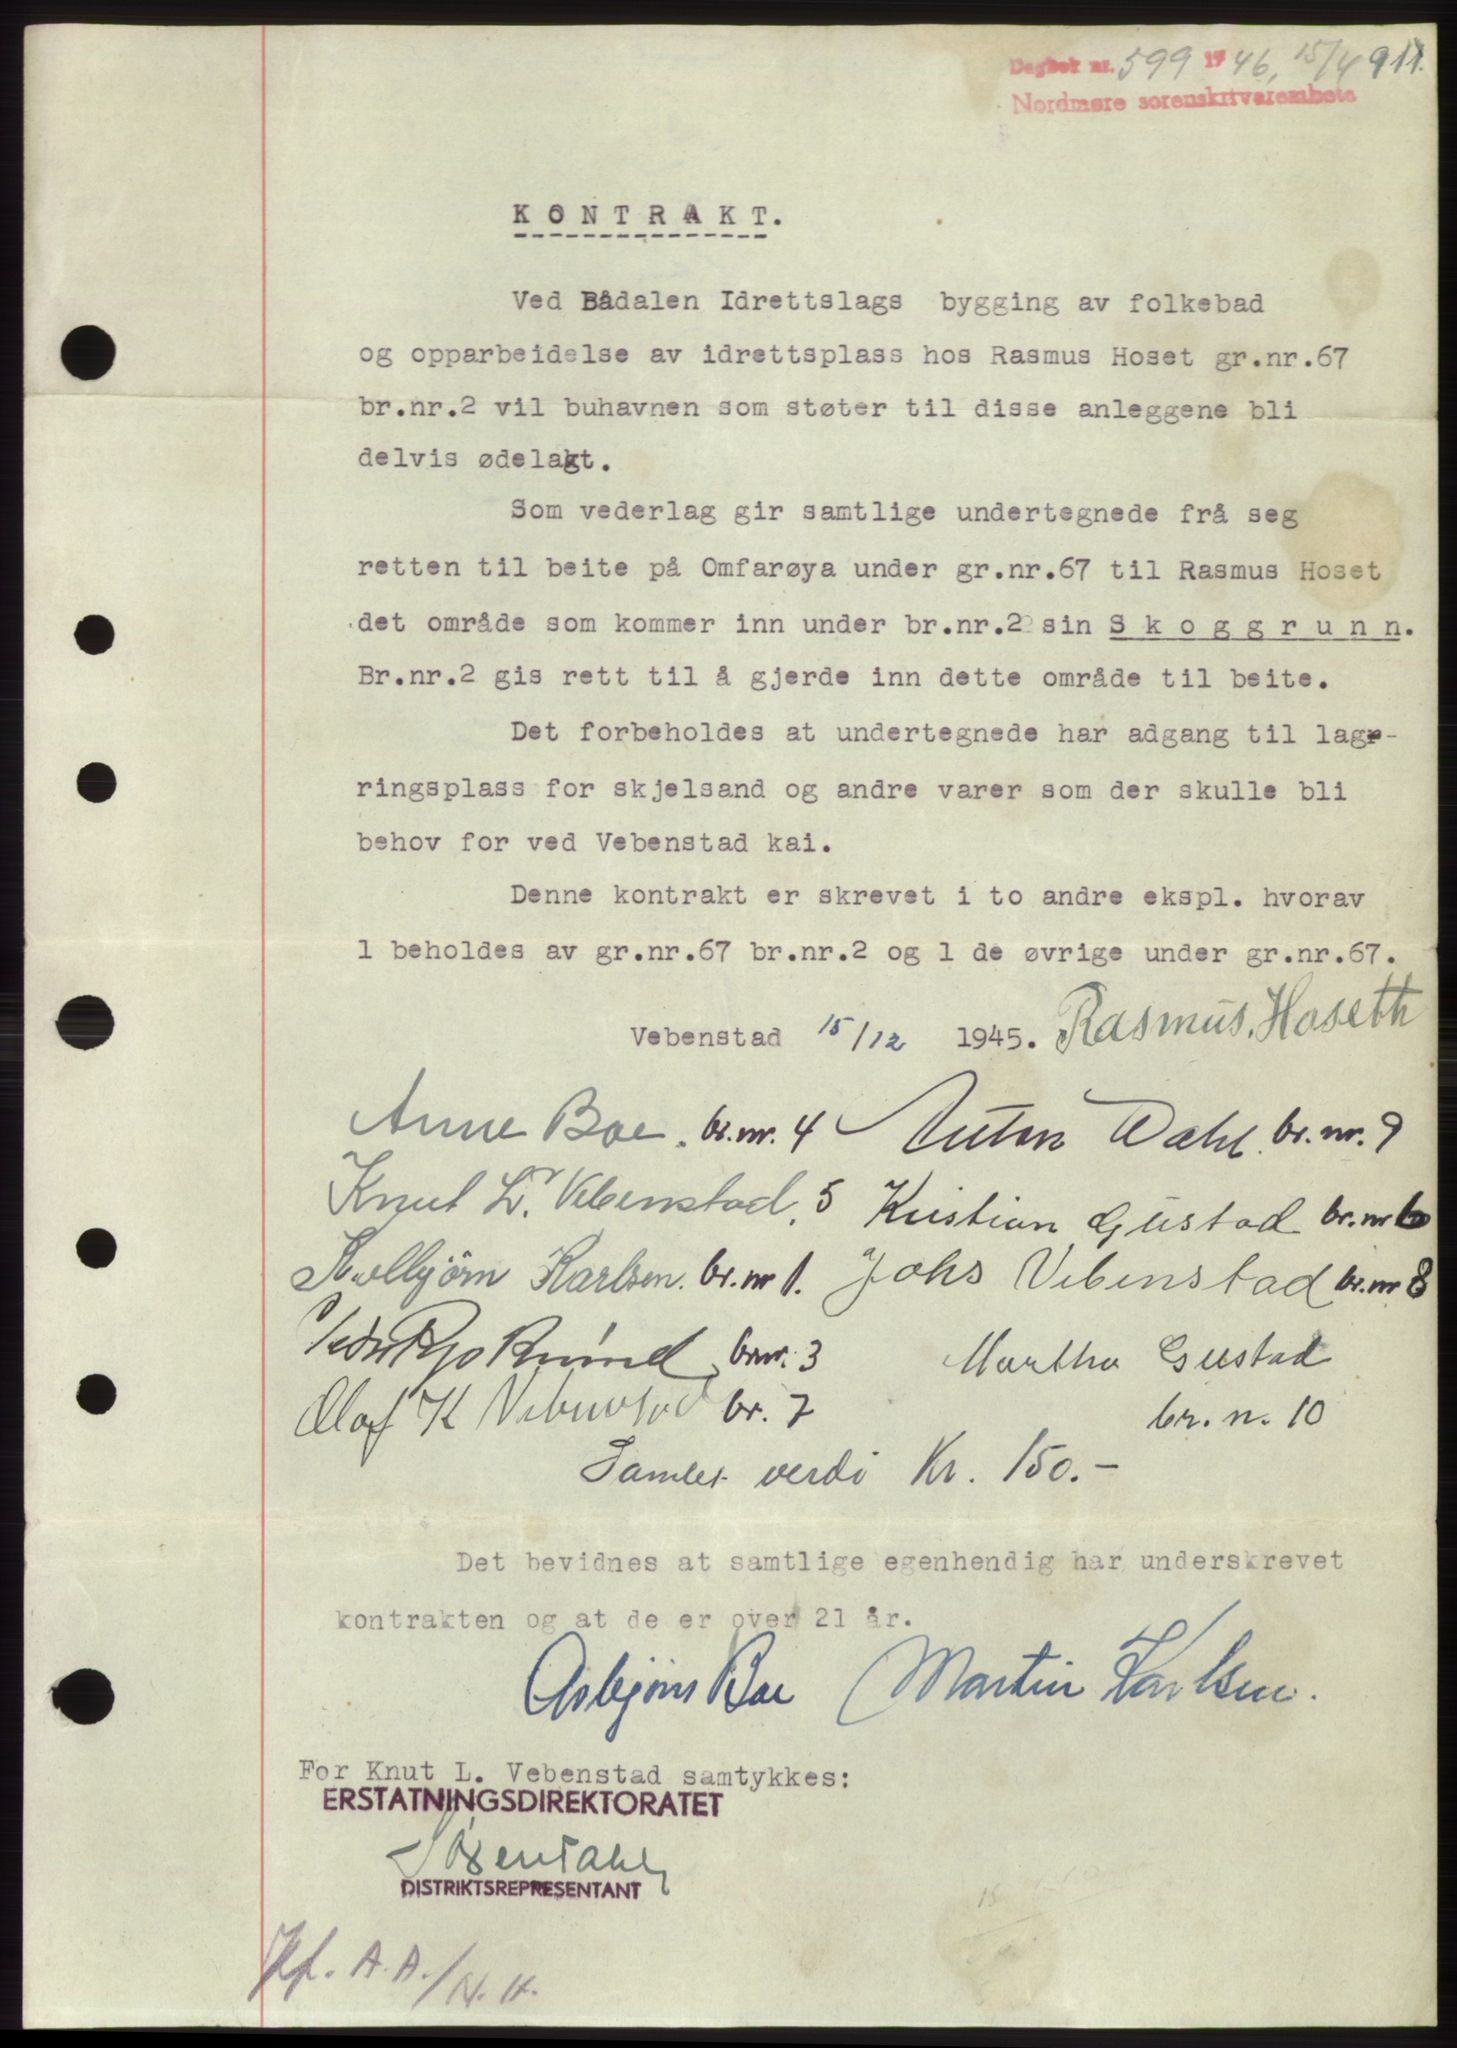 Dagbok nr. 599 1946, 15/4 911.
Nordmøre sorenskrivarembete
KONTRAKT.
Ved Bådalen Idrettslags bygging av folkebad
og opparbeidelse av idrettsplass hos Rasmus Hoset gr.nr.67
br.nr.2 vil buhavnen som støter til disse anleggene bli
delvis ødelakt.
Som vederlag gir samtlige undertegnede frå seg
retten til beite på Omfarøya under gr.nr.67 til Rasmus Hoset
det område som kommer inn under br.nr.2 sin Skoggrunn.
Br.nr.2 gis rett til å gjerde inn dette område til beite.
Det forbeholdes at undertegnede har adgang til lagr-
ringsplass for skjelsand og andre varer som der skulle bli
behov for ved Vebenstad kai.
Denne kontrakt er skrevet i to andre ekspl. hvorav
1 beholdes av gr.nr.67 br.nr.2 og 1 de øvrige under gr.nr.67.
Vebenstad 15/12 1945. Rasmus Hoseth
Anne Boe. br.nr. 4 Anton Dahl. br.nr. 9
Knut L. Vebenstad, 5 Kristian Gustad br.nr 6
Kolbjörn Karlsen. br.nr 1. Johs Vebenstad br.nr 8
br.nr. 3 Martha Gustad
Olaf K Vebenstad br. 7 br. n. 10
Samlet verdi Kr. 150.-
Det bevidnes at samtlige egenhendig har underskrevet
kontrakten og at de er over 21 år.
Asbjørn Boe Martin Karlsen.
For Knut L. Vebenstad samtykkes:
ERSTATNINGSDIREKTORATET
DISTRIKTSREPRESENTANT
Kf. A.A./N.H.